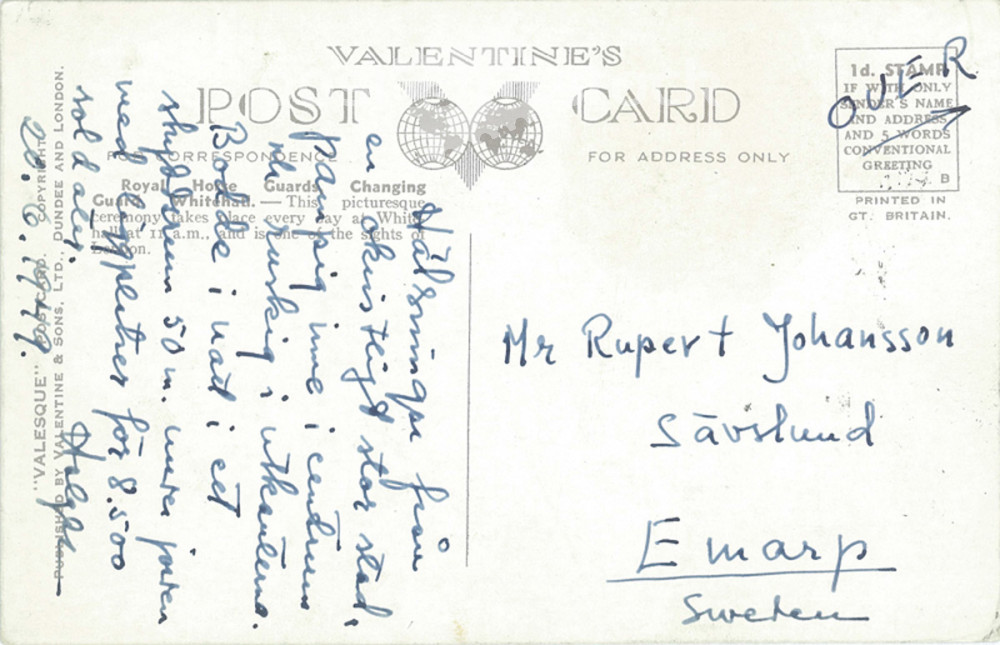 VALENTINE'S
POST CARD
FOR CORRESPONDENCE
FOR ADDRESS ONLY
Royal Horse Guards Changing
Guard, Whitehall. — This picturesque
ceremony takes place every day at White-
hall at 11 a.m., and is one of the sights of
London.
1d. STAMP
IF WITH ONLY
SENDER'S NAME
AND ADDRESS
AND 5 WORDS
CONVENTIONAL
GREETING
B
PRINTED IN
GT. BRITAIN.
OVER
"VALESQUE" POSTCARD. COPYRIGHT.
PUBLISHED BY VALENTINE & SONS, LTD., DUNDEE AND LONDON.
Hälsningar från
en otroligt stor stad,
pampig inne i centrum
och ruskig i utkanterna.
Bodde i natt i ett
skyddsrum 50 m. under jorden
med liggplatser för 8.500
soldater.
Helge
20.6.1949.
Mr Rupert Johansson
Sävslund
Emarp
Sweden